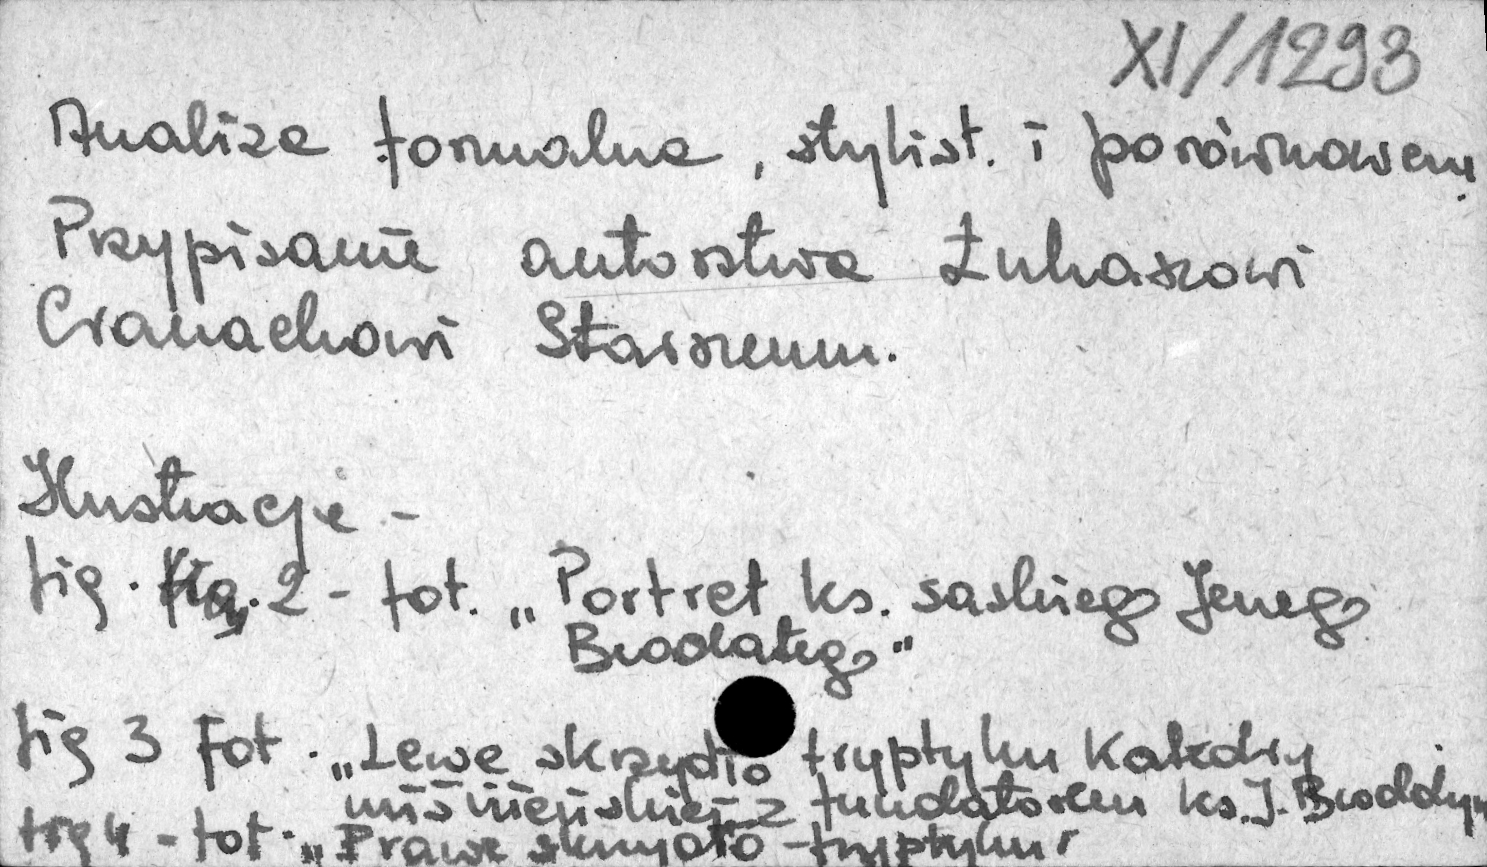 XI/1293
Analiza formalna, stylist. i porównawcza
Przypisanie autorstwa Łukaszowi
Cranachowi Starszemu.
Ilustracje -
fig. 2 - fot. „Portret ks. saskiego Jerzego
Brodatego"
fig 3 Fot. „Lewe skrzydło tryptyku Katedry
miśnieńskiej z fundatorem ks. J. Brodatym
fig 4 - fot. „Prawe skrzydło tryptyku